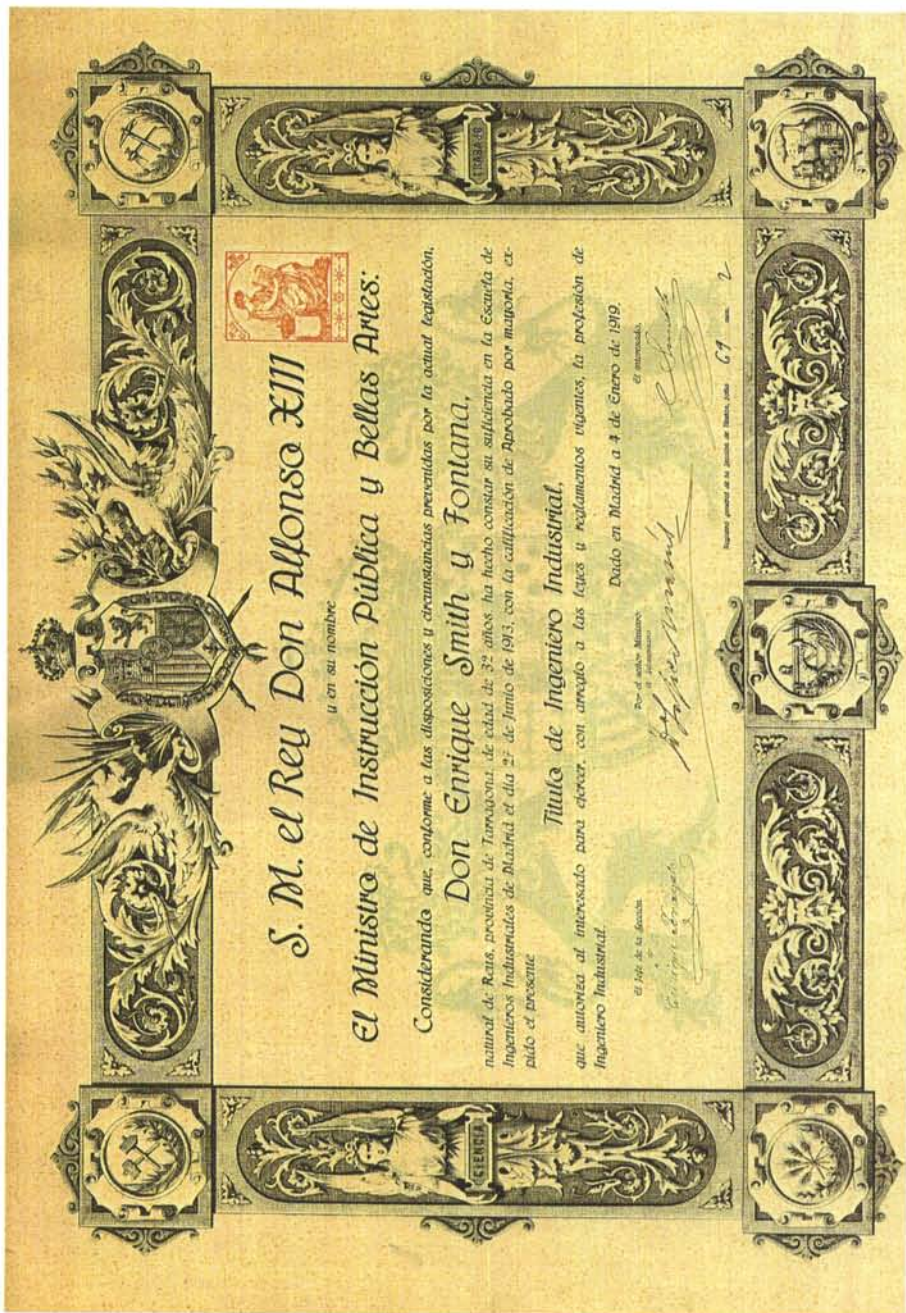 S. M. el Rey Don Alfonso XIII
y en su nombre
El Ministro de Instrucción Pública y Bellas Artes:
Considerando que, conforme a las disposiciones y circunstancias prevenidas por la actual legislación,
Don Enrique Smith y Fontana,
natural de Reus, provincia de Tarragona, de edad de 32 años, ha hecho constar su suficiencia en la Escuela de
Ingenieros Industriales de Madrid el día 27 de Junio de 1913, con la calificación de Aprobado por mayoría, ex-
pido el presente
Título de Ingeniero Industrial,
que autoriza al interesado para ejercer, con arreglo a las leyes y reglamentos vigentes, la profesión de
Ingeniero Industrial.
Dado en Madrid a 4 de Enero de 1919.
El Jefe de la Sección,
Por el señor Ministro:
El Subsecretario
El interesado,
E Smith
Registro general de los títulos, folio 69 núm. 2
CIENCIA
TRABAJO